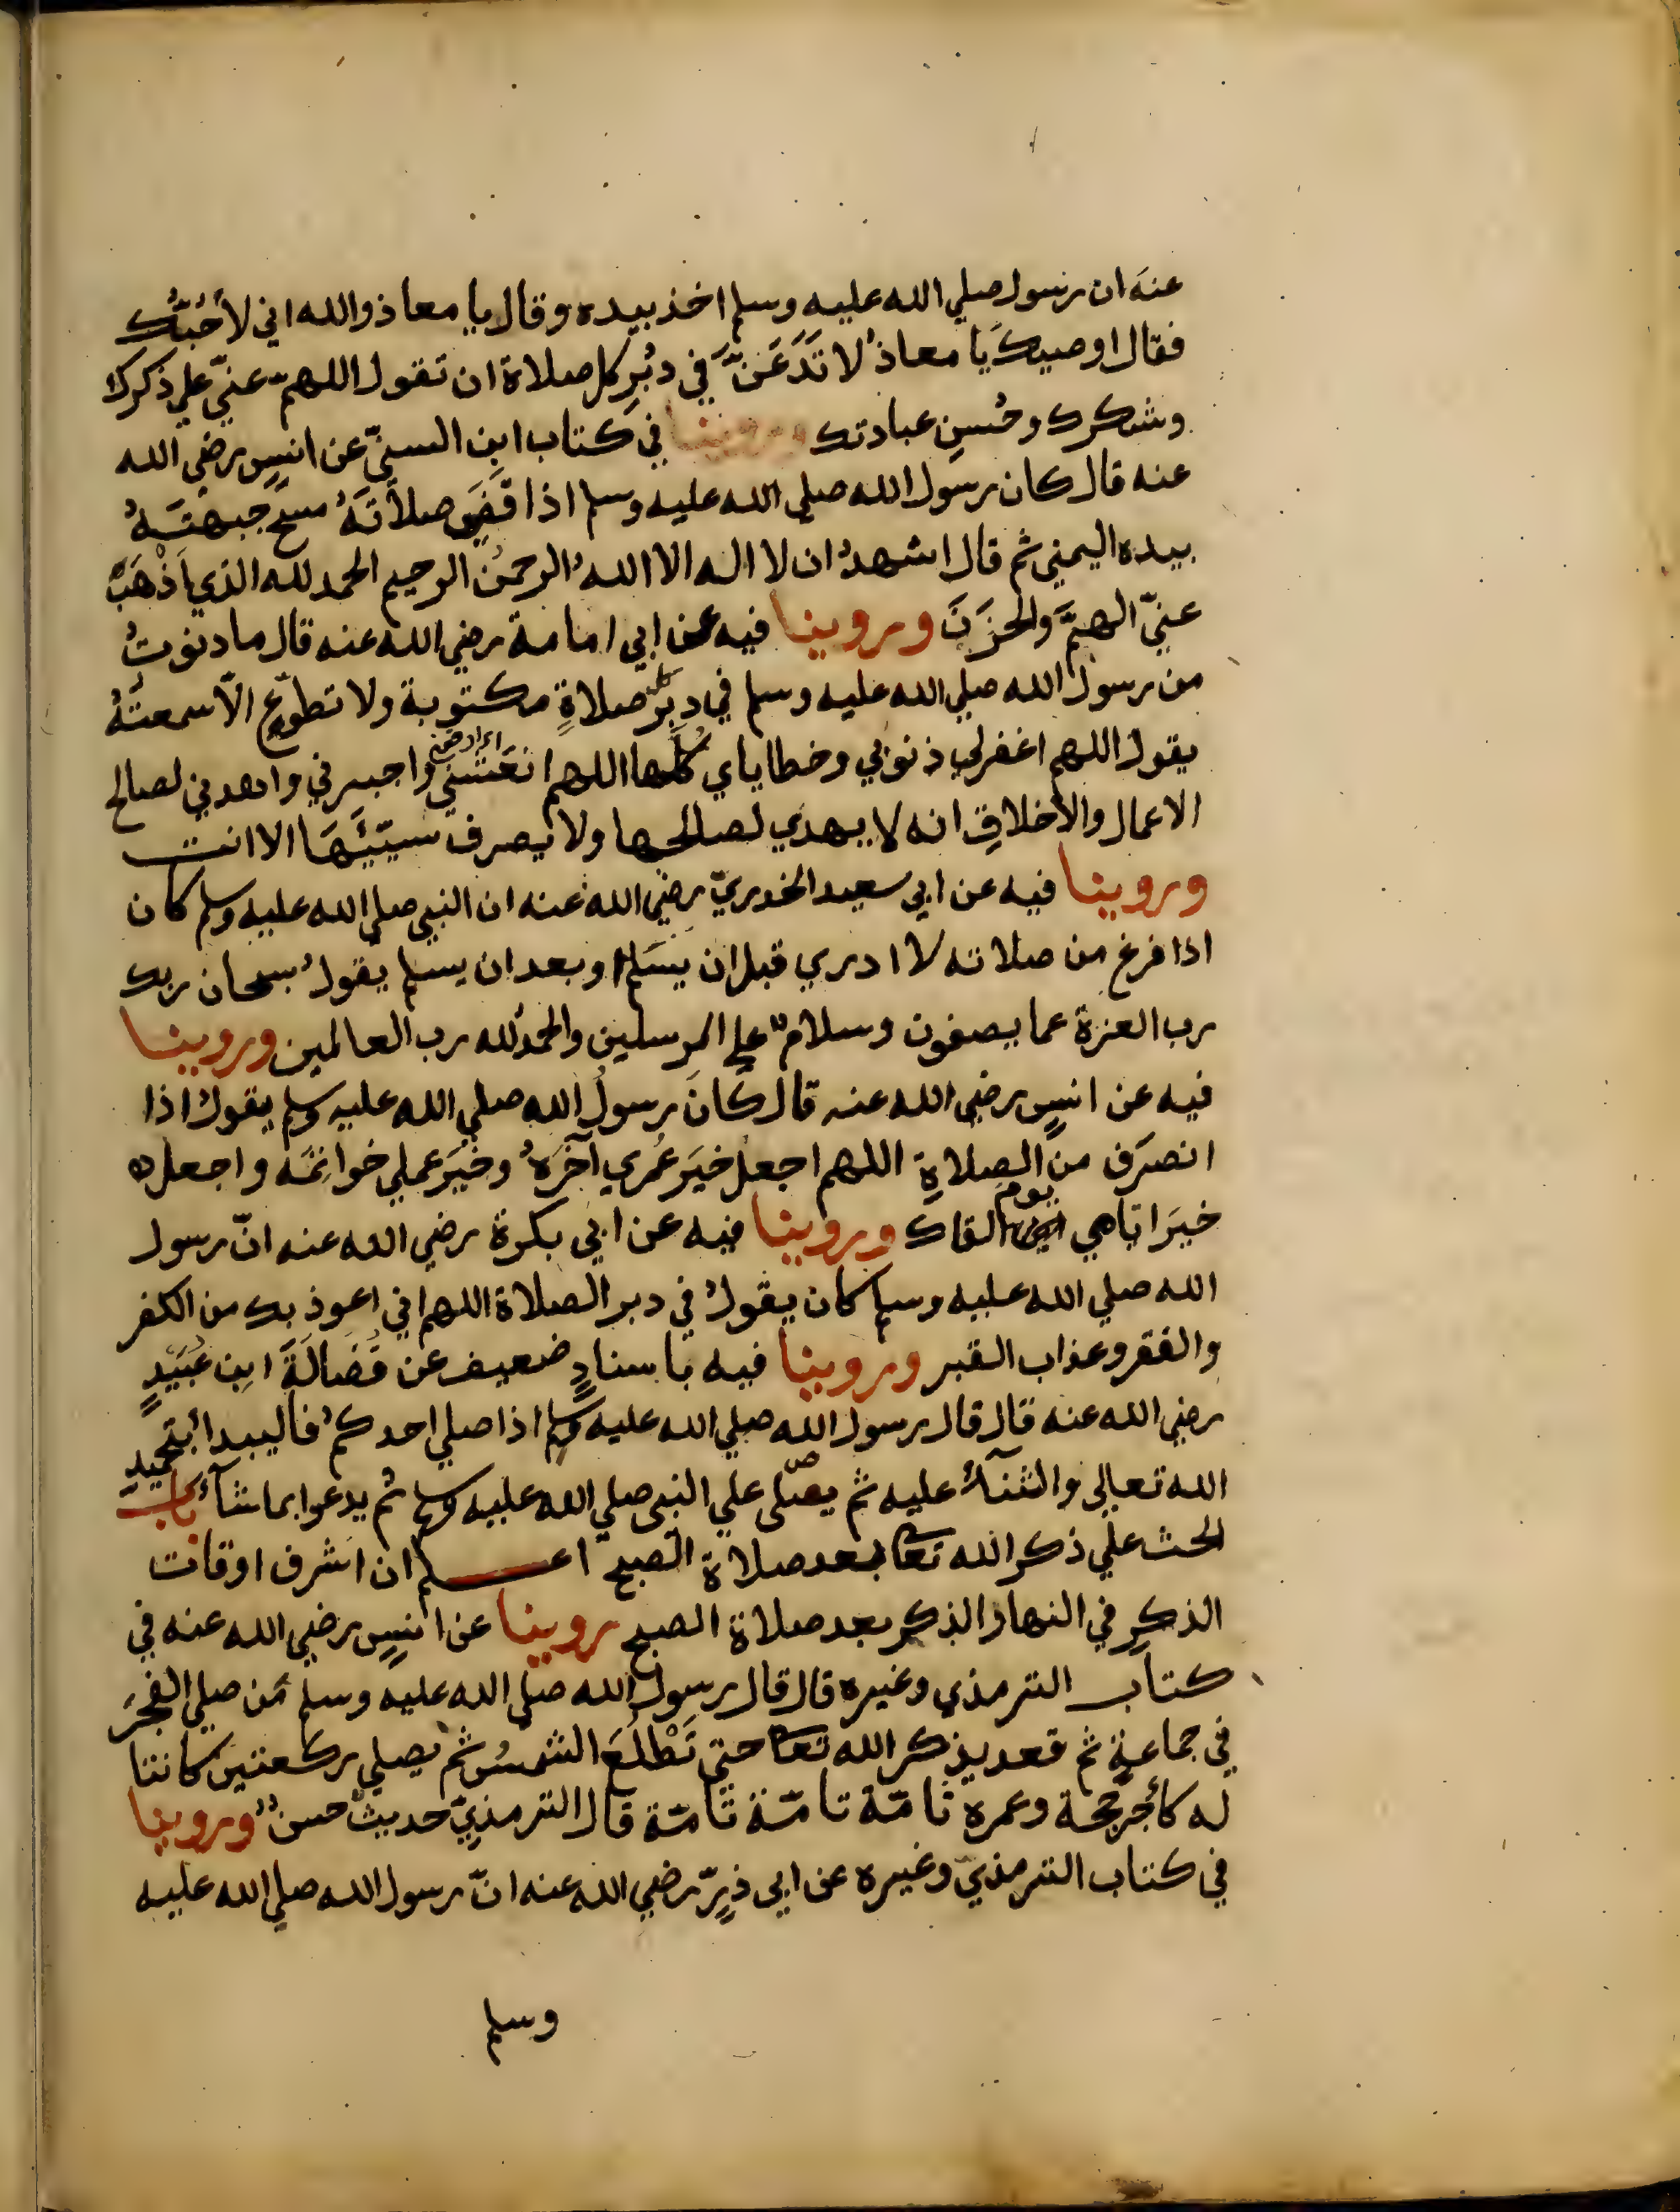 عنه ان رسول صلي الله عليه وسلم اخذ بيده وقال يا معاذ والله اني لأُحِبُّك
فقال اوصيك يَا معاذُ لا تَدَعَنَّ في دبُرِ كل صلاة ان تقول اللهمّ عنيّ علي ذكرك
وشكرك وحُسنِ عبادتك وروينا في كتاب ابن السنيّ عن انسٍ رضي الله
عنه قال كان رسول الله صلي الله عليه وسلم اذا قَضَي صلاَتَهُ مسح جبهتَهُ
بيده اليمني ثم قال اشهدُ ان لا اله الا اللهُ الرحمنُ الرحيم الحمد لله الذي اَذْهَبَ
عنيّ الهمَّ والحَزَنَ وروينا فيه عن ابي امامة رضي الله عنه قال ما دنوتُ
من رسول الله صلي الله عليه وسلم في دبرِ كل صلاةٍ مكتوبة ولا تطوّعٍ الاّ سمعتُهُ
يقول اللهم اغفر لي ذنوبي وخطاياي كُلّها اللهم انعَشني اي ارفعني واجبرني واهدني لصالح
الاعمال والأخلاقِ انه لا يهدي لصالحها ولا يصرف سيّئَهَا الا انت
وروينا فيه عن ابي سعيد الخدريّ رضي الله عنه ان النبي صلي الله عليه وسلم كان
اذا فرغ من صلاته لا ادري قبل ان يسَلم او بعد ان يسلم يقولُ سبحان ربك
رب العزة عما يصفون وسلامٌ علي المرسلين والحمد لله رب العالمين وروينا
فيه عن انسٍ رضي الله عنه قال كانَ رسولُ الله صلي الله عليه وسلم يقول اذا
انصرَف من الصلاةِ اللهم اجعل خيَر عُمُري آخرَهُ وخَيْرَ عملي خواتِمَه واجعل
خيَر اياّمي يوم القاك وروينا فيه عن ابي بكرة رضي الله عنه انّ رسول
الله صلي الله عليه وسلم كان يقولُ في دبر الصلاة اللهم اني اعوذ بك من الكفر
والفقر وعذاب القبر وروينا فيه باسنادٍ ضعيف عن فُضَالَةَ ابن عُبَيْدٍ
رضي الله عنه قال قال رسول الله صلي الله عليه وسلم اذا صلي احدكمُ فاليبدا بتحميد
الله تعالي والثنآءُ عليه ثم يصلّى علي النبي صلي الله عليه وسلم ثُم يدعوا بما شآءَ باب
الحث علي ذكر الله تعا بعد صلاة الصبح اعلم ان اشرف اوقات
الذكرِ في النهار الذكر بعد صلاة الصبح روينا عن انسٍ رضي الله عنه في
كتاب الترمذي وغيره قال قال رسول الله صلي الله عليه وسلم مَن صلي الفجرَ
في جماعةٍ ثم قعد يذكر الله تعا حتي تَطْلُعَ الشمسُ ثم يصلي ركعتين كانتا
له كأجرِ حجة وعمره تامّة تامّة تامّة قال الترمذيّ حديثٌ حسنٌ وروينا
في كتاب الترمذيّ وغيره عن ابي ذرٍّ رضي الله عنه انّ رسول الله صلي الله عليه
وسلم